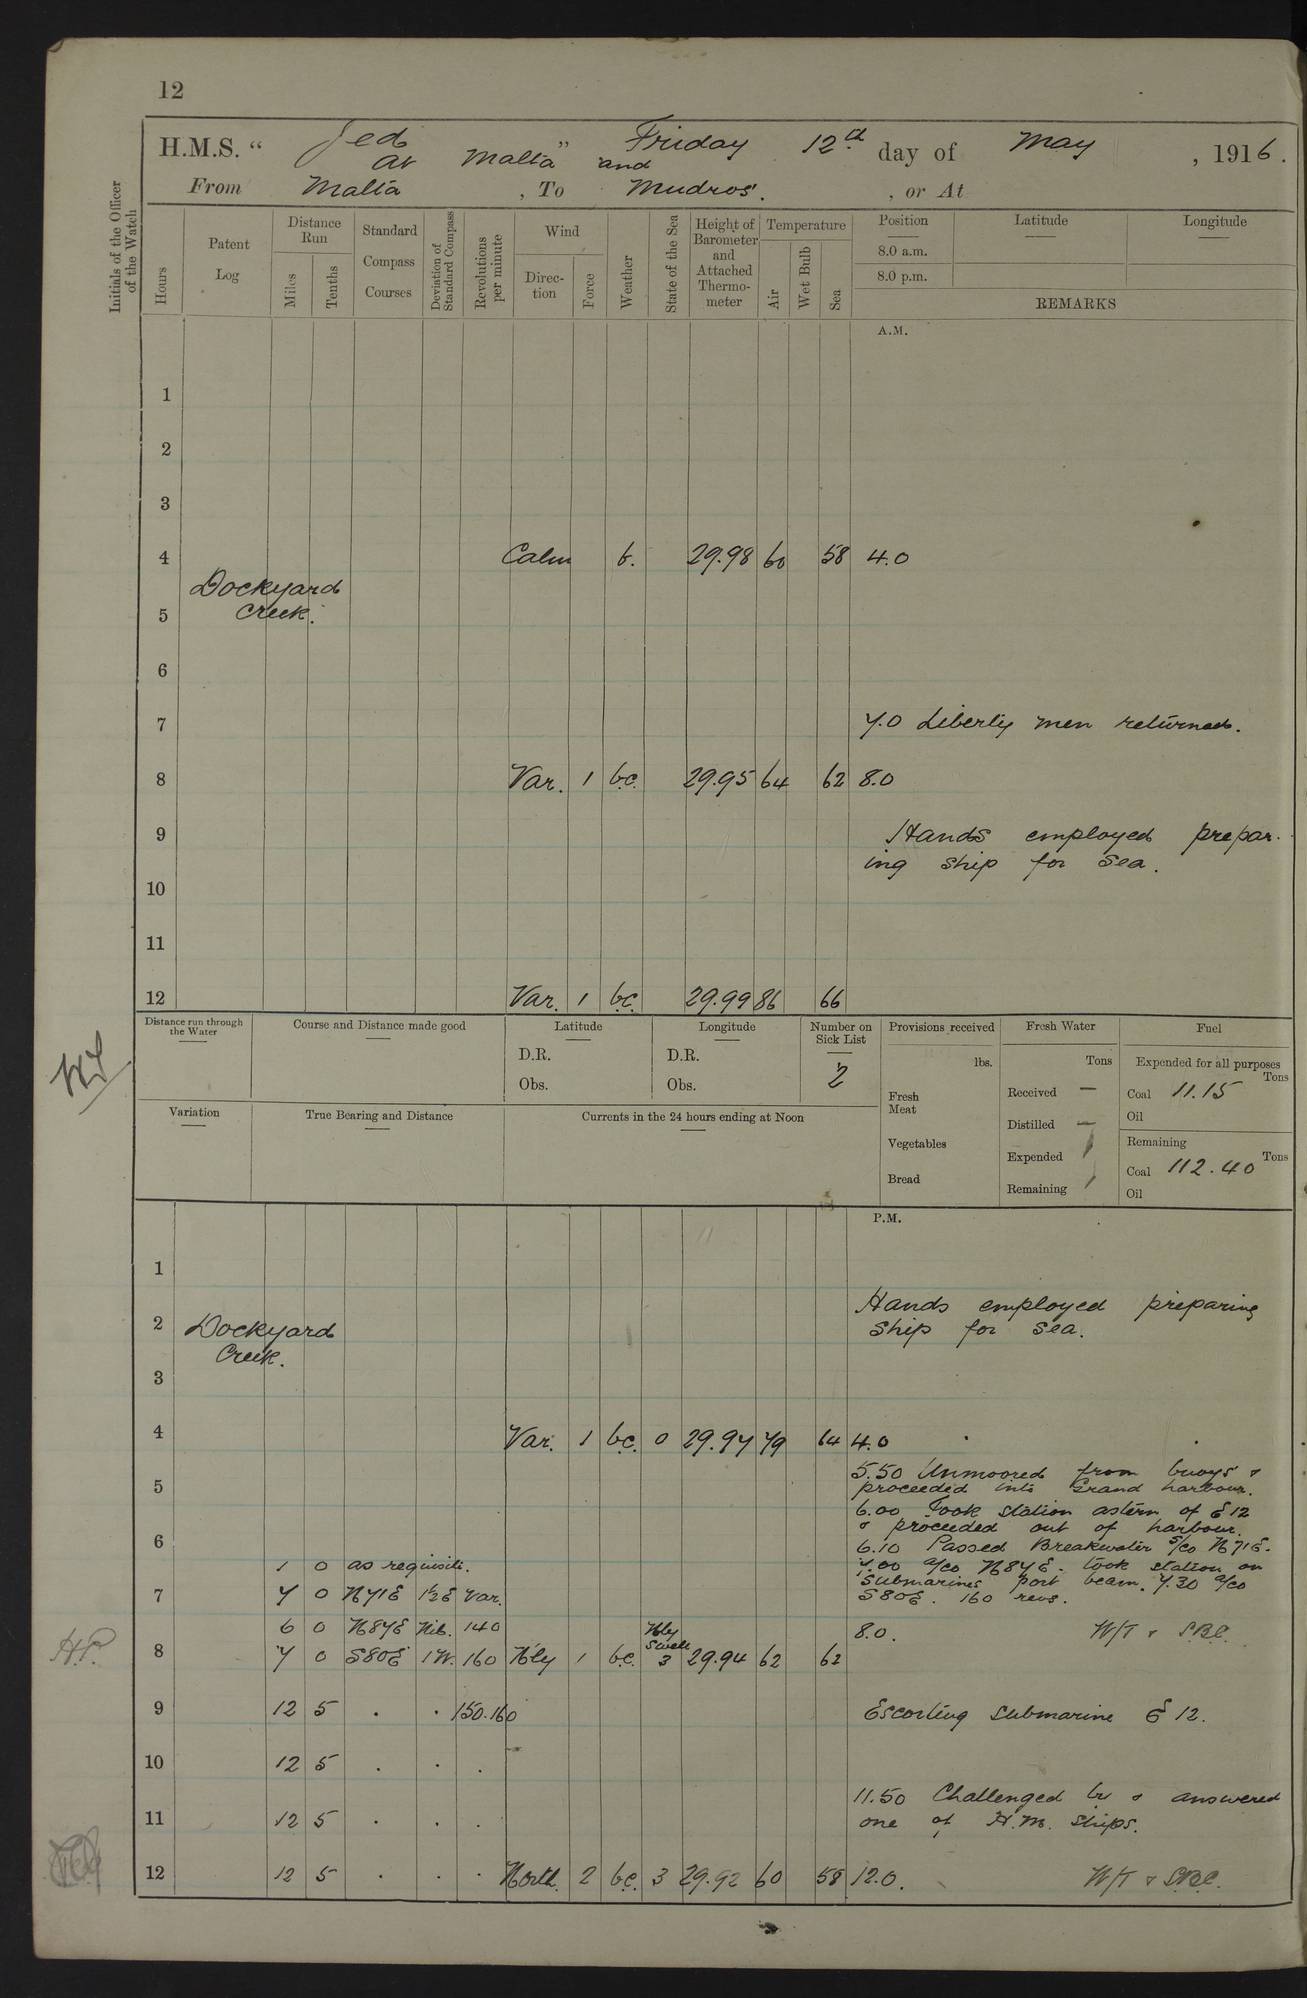 12
H.M.S. “ Jed ” Friday 12th day of May , 1916.
at Malta and
From Malta , To Mudros. , or At
Initials of the Officer of the Watch
Hours
Patent Log
Distance Run
Miles
Tenths
Standard Compass Courses
Deviation of Standard Compass
Revolutions per minute
Wind
Direc-tion
Force
Weather
State of the Sea
Height of Barometer and Attached Thermo-meter
Temperature
Air
Wet Bulb
Sea
Position Latitude Longitude
8.0 a.m.
8.0 p.m.
REMARKS
A.M.
1
2
3
4 Calm b. 29.98 60 58 4.0
Dockyard
5 Creek.
6
7 7.0 Liberty men returned.
8 Var. 1 b.c. 29.95 64 62 8.0
9 Hands employed prepar-
ing ship for sea.
10
11
12 Var. 1 b.c. 29.99 86 66
Distance run through the Water
Course and Distance made good
Latitude
D.R.
Obs.
Longitude
D.R.
Obs.
Number on Sick List
2
Provisions received
lbs.
Fresh Meat
Vegetables
Bread
Fresh Water
Tons
Received —
Distilled —
Expended
Remaining
Fuel
Expended for all purposes
Tons
Coal 11.15
Oil
Remaining
Tons
Coal 112.40
Oil
Variation
True Bearing and Distance
Currents in the 24 hours ending at Noon
P.M.
1
Hands employed preparing
2 Dockyard ship for sea.
Creek.
3
4 Var. 1 b.c. 0 29.97 79 64 4.0
5.50 Unmoored from buoys &
5 proceeded into Grand harbour.
6.00 Took station astern of E12
& proceeded out of harbour.
6 6.10 Passed Breakwater S/Co N71E.
1 0 as requisite. 7.00 a/co N87E. took station on
submarines port beam. 7.30 a/co
7 7 0 N71E 1½E Var. S80E. 160 revs.
6 0 N87E Nil. 140 Nly Swell 8.0. W/T & S.B.C.
8 7 0 S80E 1W. 160 N'ly 1 b.c. 3 29.94 62 62
H.P.
9 12 5 . . 150.160 Escorting submarine E 12.
10 12 5 . . .
11.50 Challenged by & answered
11 12 5 . . . one of H.M. ships.
12 12 5 . . . North. 2 b.c. 3 29.92 60 58 12.0. W/T & S.B.C.